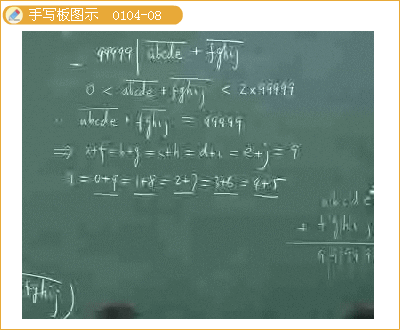 手写板图示 0104-08
99999 | abcde + fghij
0 < abcde + fghij < 2×99999
∴ abcde + fghij = 99999
⇒ a+f=b+g=c+h=d+i=e+j=9
9=0+9=1+8=2+7=3+6=4+5
abcde
+ fghij
99999
fghij )